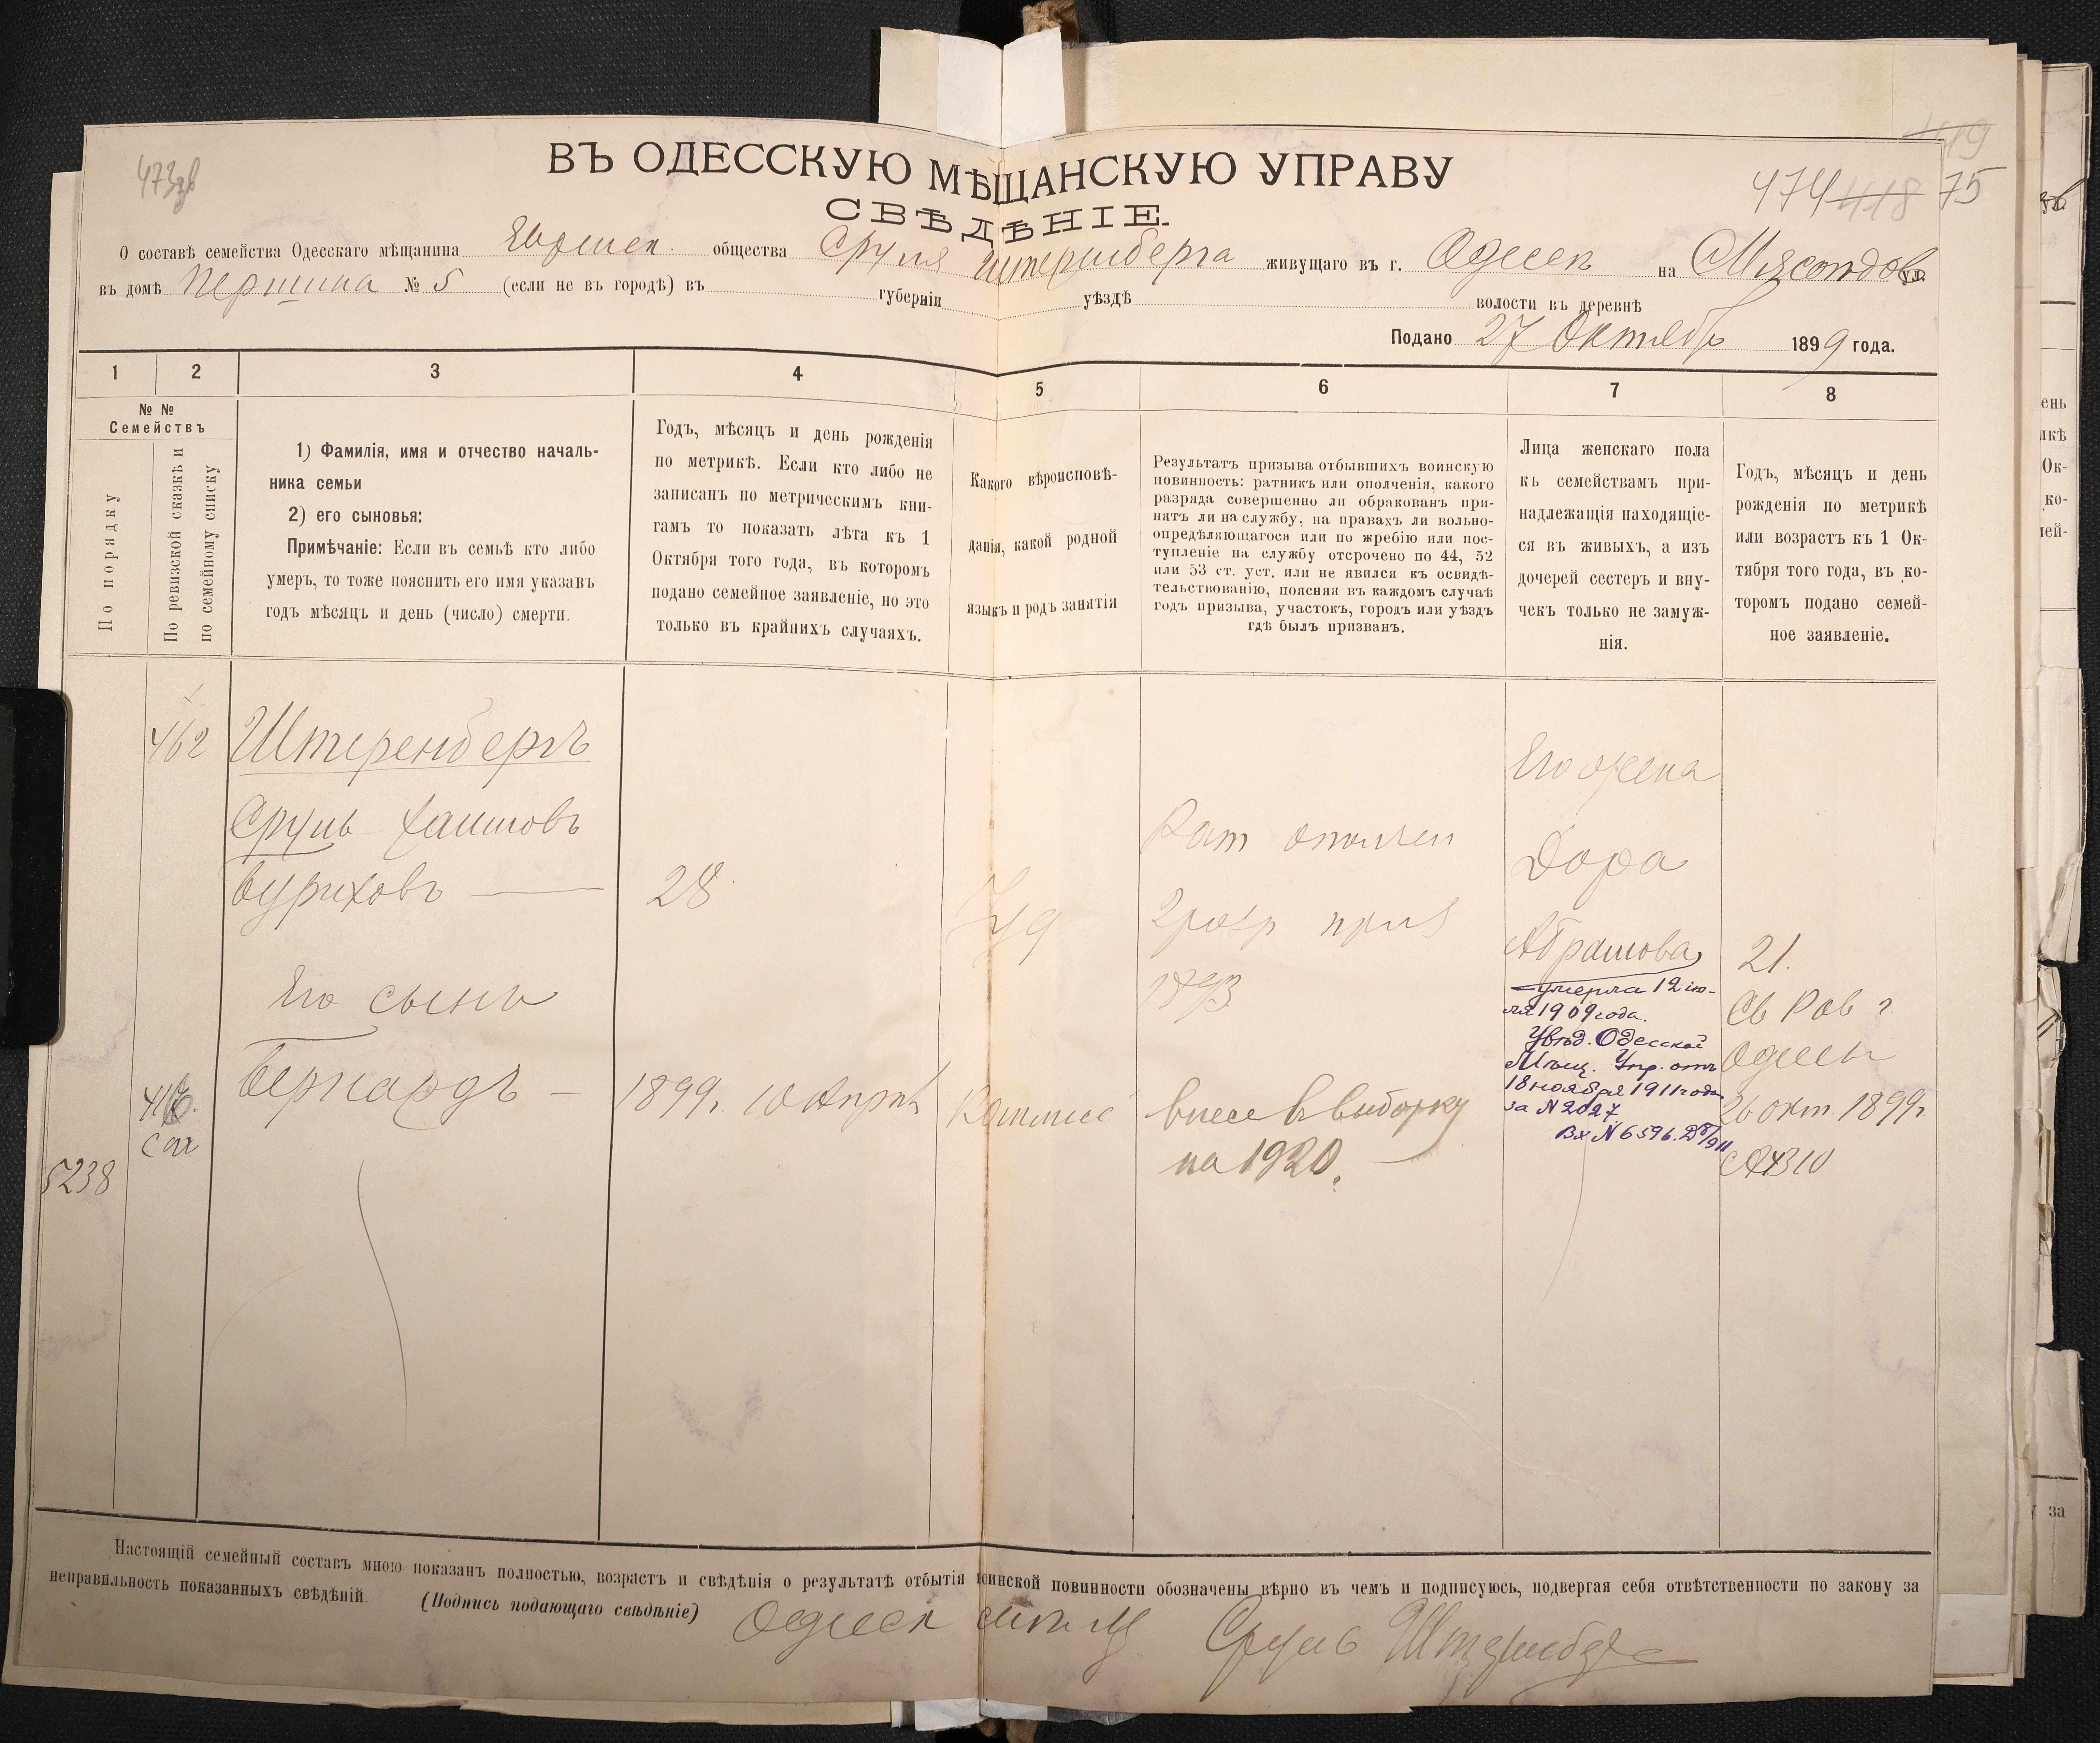 473об
ВЪ ОДЕССКУЮ МѢЩАНСКУЮ УПРАВУ
474 418 75
СВѢДѢНІЕ.
О составѣ семейства Одесскаго мѣщанина Еврейск. общества Сруля Штернберга живущаго въ г. Одессѣ на Мясоѣдов ул.
въ домѣ Першина № 5 (если не въ городѣ) въ губерніи уѣздѣ волости въ деревнѣ
Подано 27 Октябр 1899 года.
1 2 3 4 5 6 7 8
№ №
Семействъ
По порядку
По ревизской сказкѣ и
по семейному списку
1) Фамилія, имя и отчество началь-
ника семьи
2) его сыновья:
Примѣчаніе: Если въ семьѣ кто либо
умеръ, то тоже пояснить его имя указавъ
годъ мѣсяцъ и день (число) смерти.
Годъ, мѣсяцъ и день рожденія
по метрикѣ. Если кто либо не
записанъ по метрическимъ кни-
гамъ то показать лѣта къ 1
Октября того года, въ которомъ
подано семейное заявленіе, но это
только въ крайнихъ случаяхъ.
Какого вѣроисповѣ-
данія, какой родной
языкъ и родъ занятія
Результатъ призыва отбывшихъ воинскую
повинность: ратникъ или ополченія, какого
разряда совершенно ли обракованъ при-
нятъ ли на службу, на правахъ ли вольно-
опредѣляющагося или по жребію или пос-
тупленіе на службу отсрочено по 44, 52
или 53 ст. уст. или не явился къ освидѣ-
тельствованію, поясняя въ каждомъ случаѣ
годъ призыва, участокъ, городъ или уѣздъ
гдѣ былъ призванъ.
Лица женскаго пола
къ семействамъ при-
надлежащія находящіе-
ся въ живыхъ, а изъ
дочерей сестеръ и вну-
чекъ только не замуж-
нія.
Годъ, мѣсяцъ и день
рожденія по метрикѣ
или возрастъ къ 1 Ок-
тября того года, въ ко-
торомъ подано семей-
ное заявленіе.
462
Штеренбергъ
Сруль Хаимовъ
Буриховъ
28
Іуд
Рат ополчен
2 разр приз
1893
Его жена
Дора
Абрамова
21.
умерла 12 ію-
ля 1909 года.
Увѣд. Одесской
Мѣщ. Упр. отъ
18 ноября 1911 года
за N 2027.
Вх N 6596.
Св Рав г
Одессы
26 окт 1899 г
Его сынъ
Бернардъ — 1899 г. 10 Апрѣл
внесе в выборку
на 1920.
5238
Настоящій семейный составъ мною показанъ полностью, возрастъ и свѣдѣнія о результатѣ отбытія воинской повинности обозначены вѣрно въ чемъ и подписуюсь, подвергая себя отвѣтственности по закону за
неправильность показанныхъ свѣдѣній. (Подпись подающаго свѣдѣніе) Одесск Сруль Штернберг